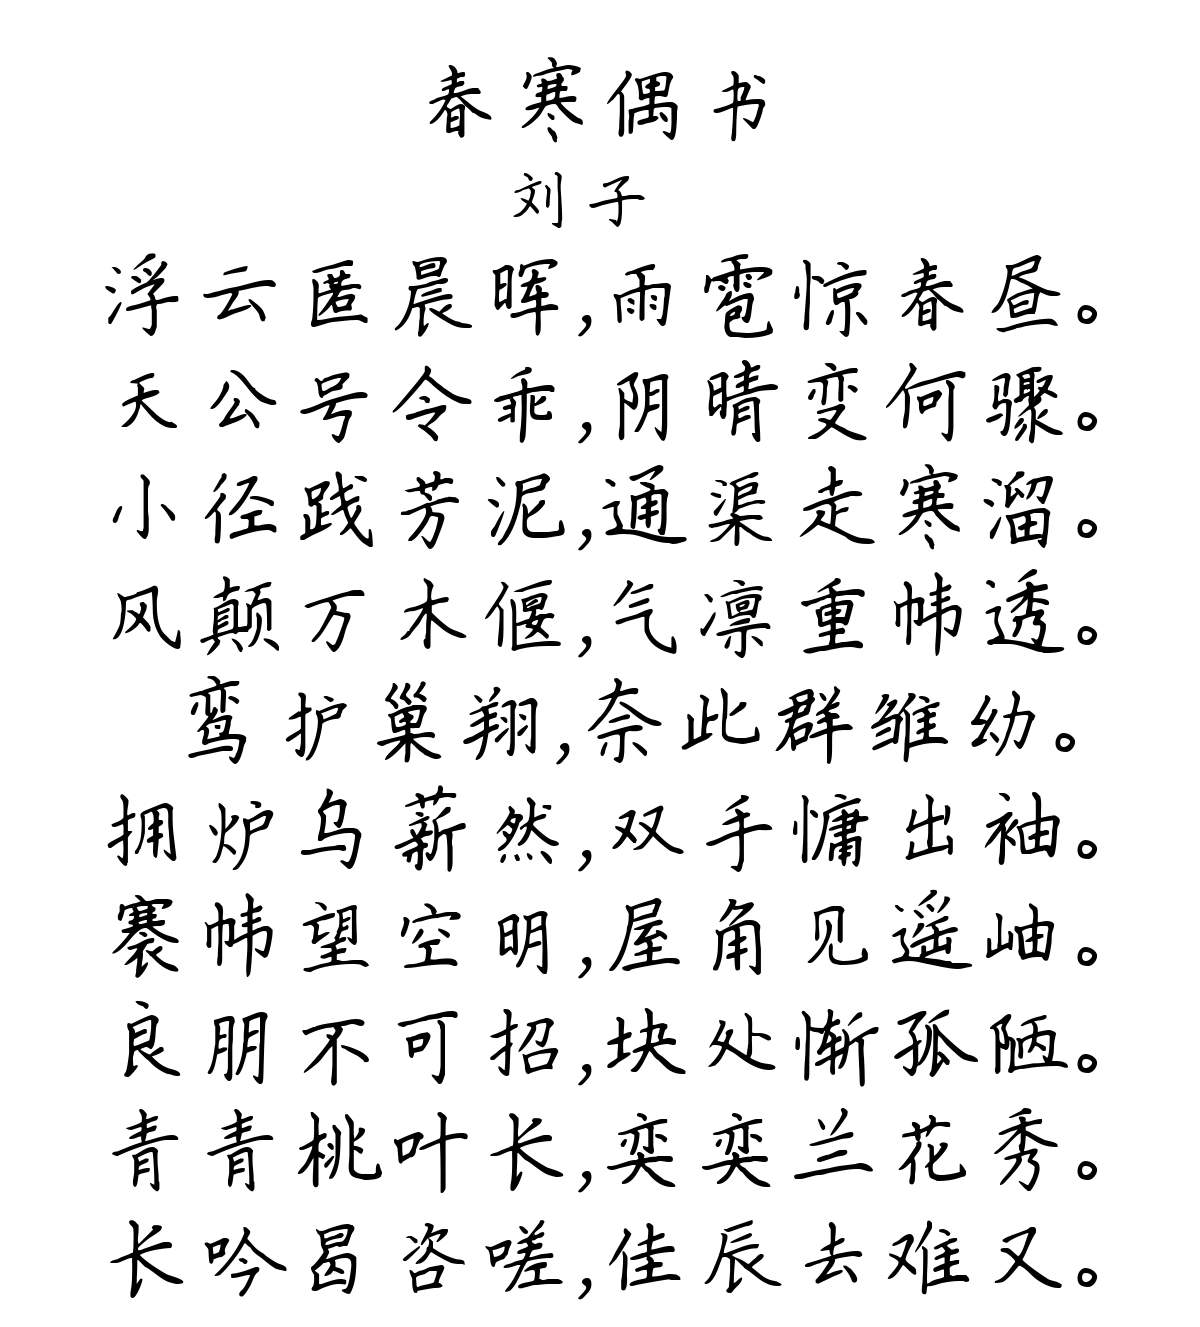 春寒偶书
刘子
浮云匿晨晖,雨雹惊春昼。
天公号令乖,阴晴变何骤。
小径践芳泥,通渠走寒溜。
风颠万木偃,气凛重帏透。
鸾护巢翔,奈此群雏幼。
拥炉乌薪然,双手慵出袖。
褰帏望空明,屋角见遥岫。
良朋不可招,块处惭孤陋。
青青桃叶长,奕奕兰花秀。
长吟曷咨嗟,佳辰去难又。